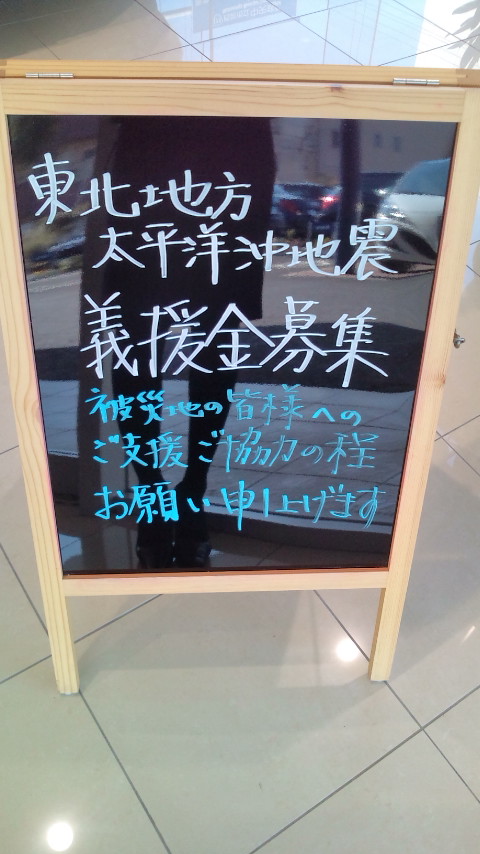 東北地方
太平洋沖地震
義援金募集
被災地の皆様への
ご支援ご協力の程
お願い申し上げます